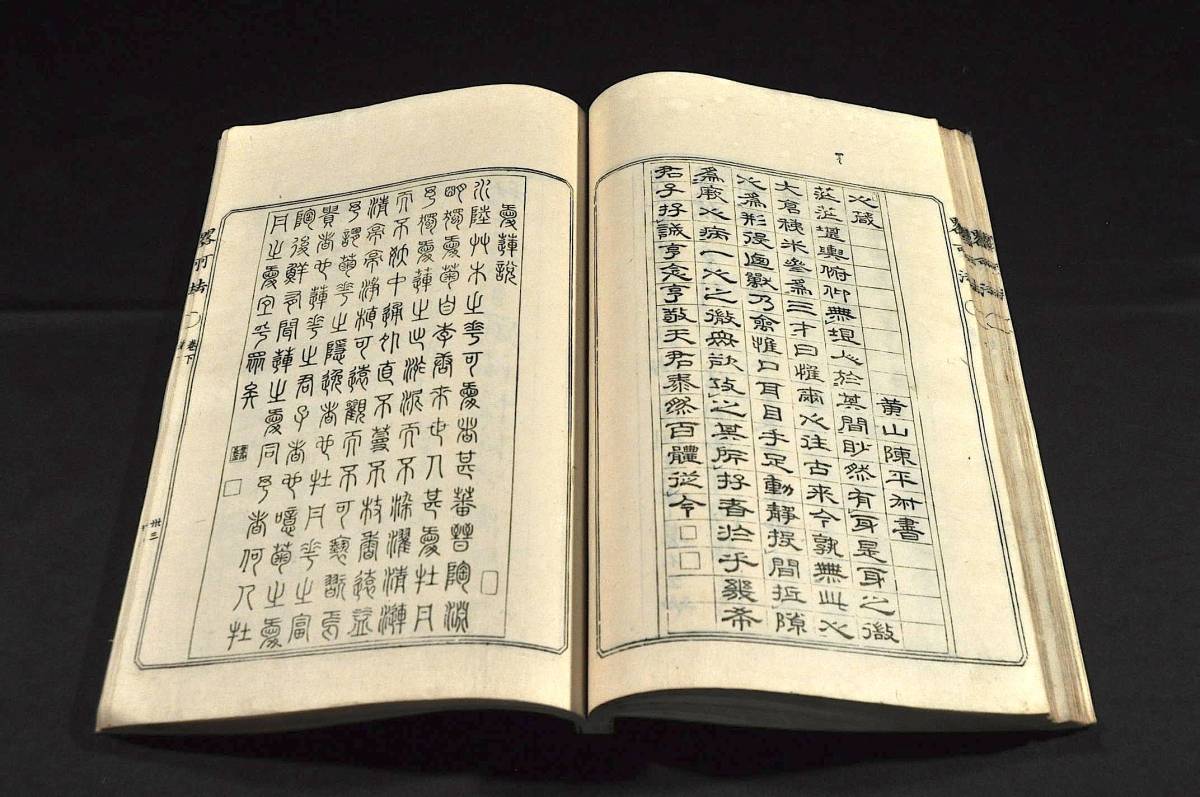 心箴 黃山陳平書
茫茫堪輿俯仰無垠人於其間眇然有身是身之微
大倉稊米參爲三才曰惟爾心往古來今孰無此心
心爲形役乃獸乃禽惟口耳目手足動靜投間抵隙
爲厥心病一心之微衆欲攻之其所存者於乎幾希
君子存誠克念克敬天君泰然百體從令□□
愛蓮說
水陸艸木之華可愛者甚蕃晉陶淵
明獨愛菊自李唐來世人甚愛牡丹
予獨愛蓮之出淤泥而不染濯清漣
而不妖中通外直不蔓不枝香遠益
清亭亭淨植可遠觀而不可褻翫焉
予謂菊華之隱逸者也牡丹華之富
貴者也蓮華之君子者也噫菊之愛
陶後鮮有聞蓮之愛同予者何人牡
丹之愛宜乎眾矣
卷下
卅三